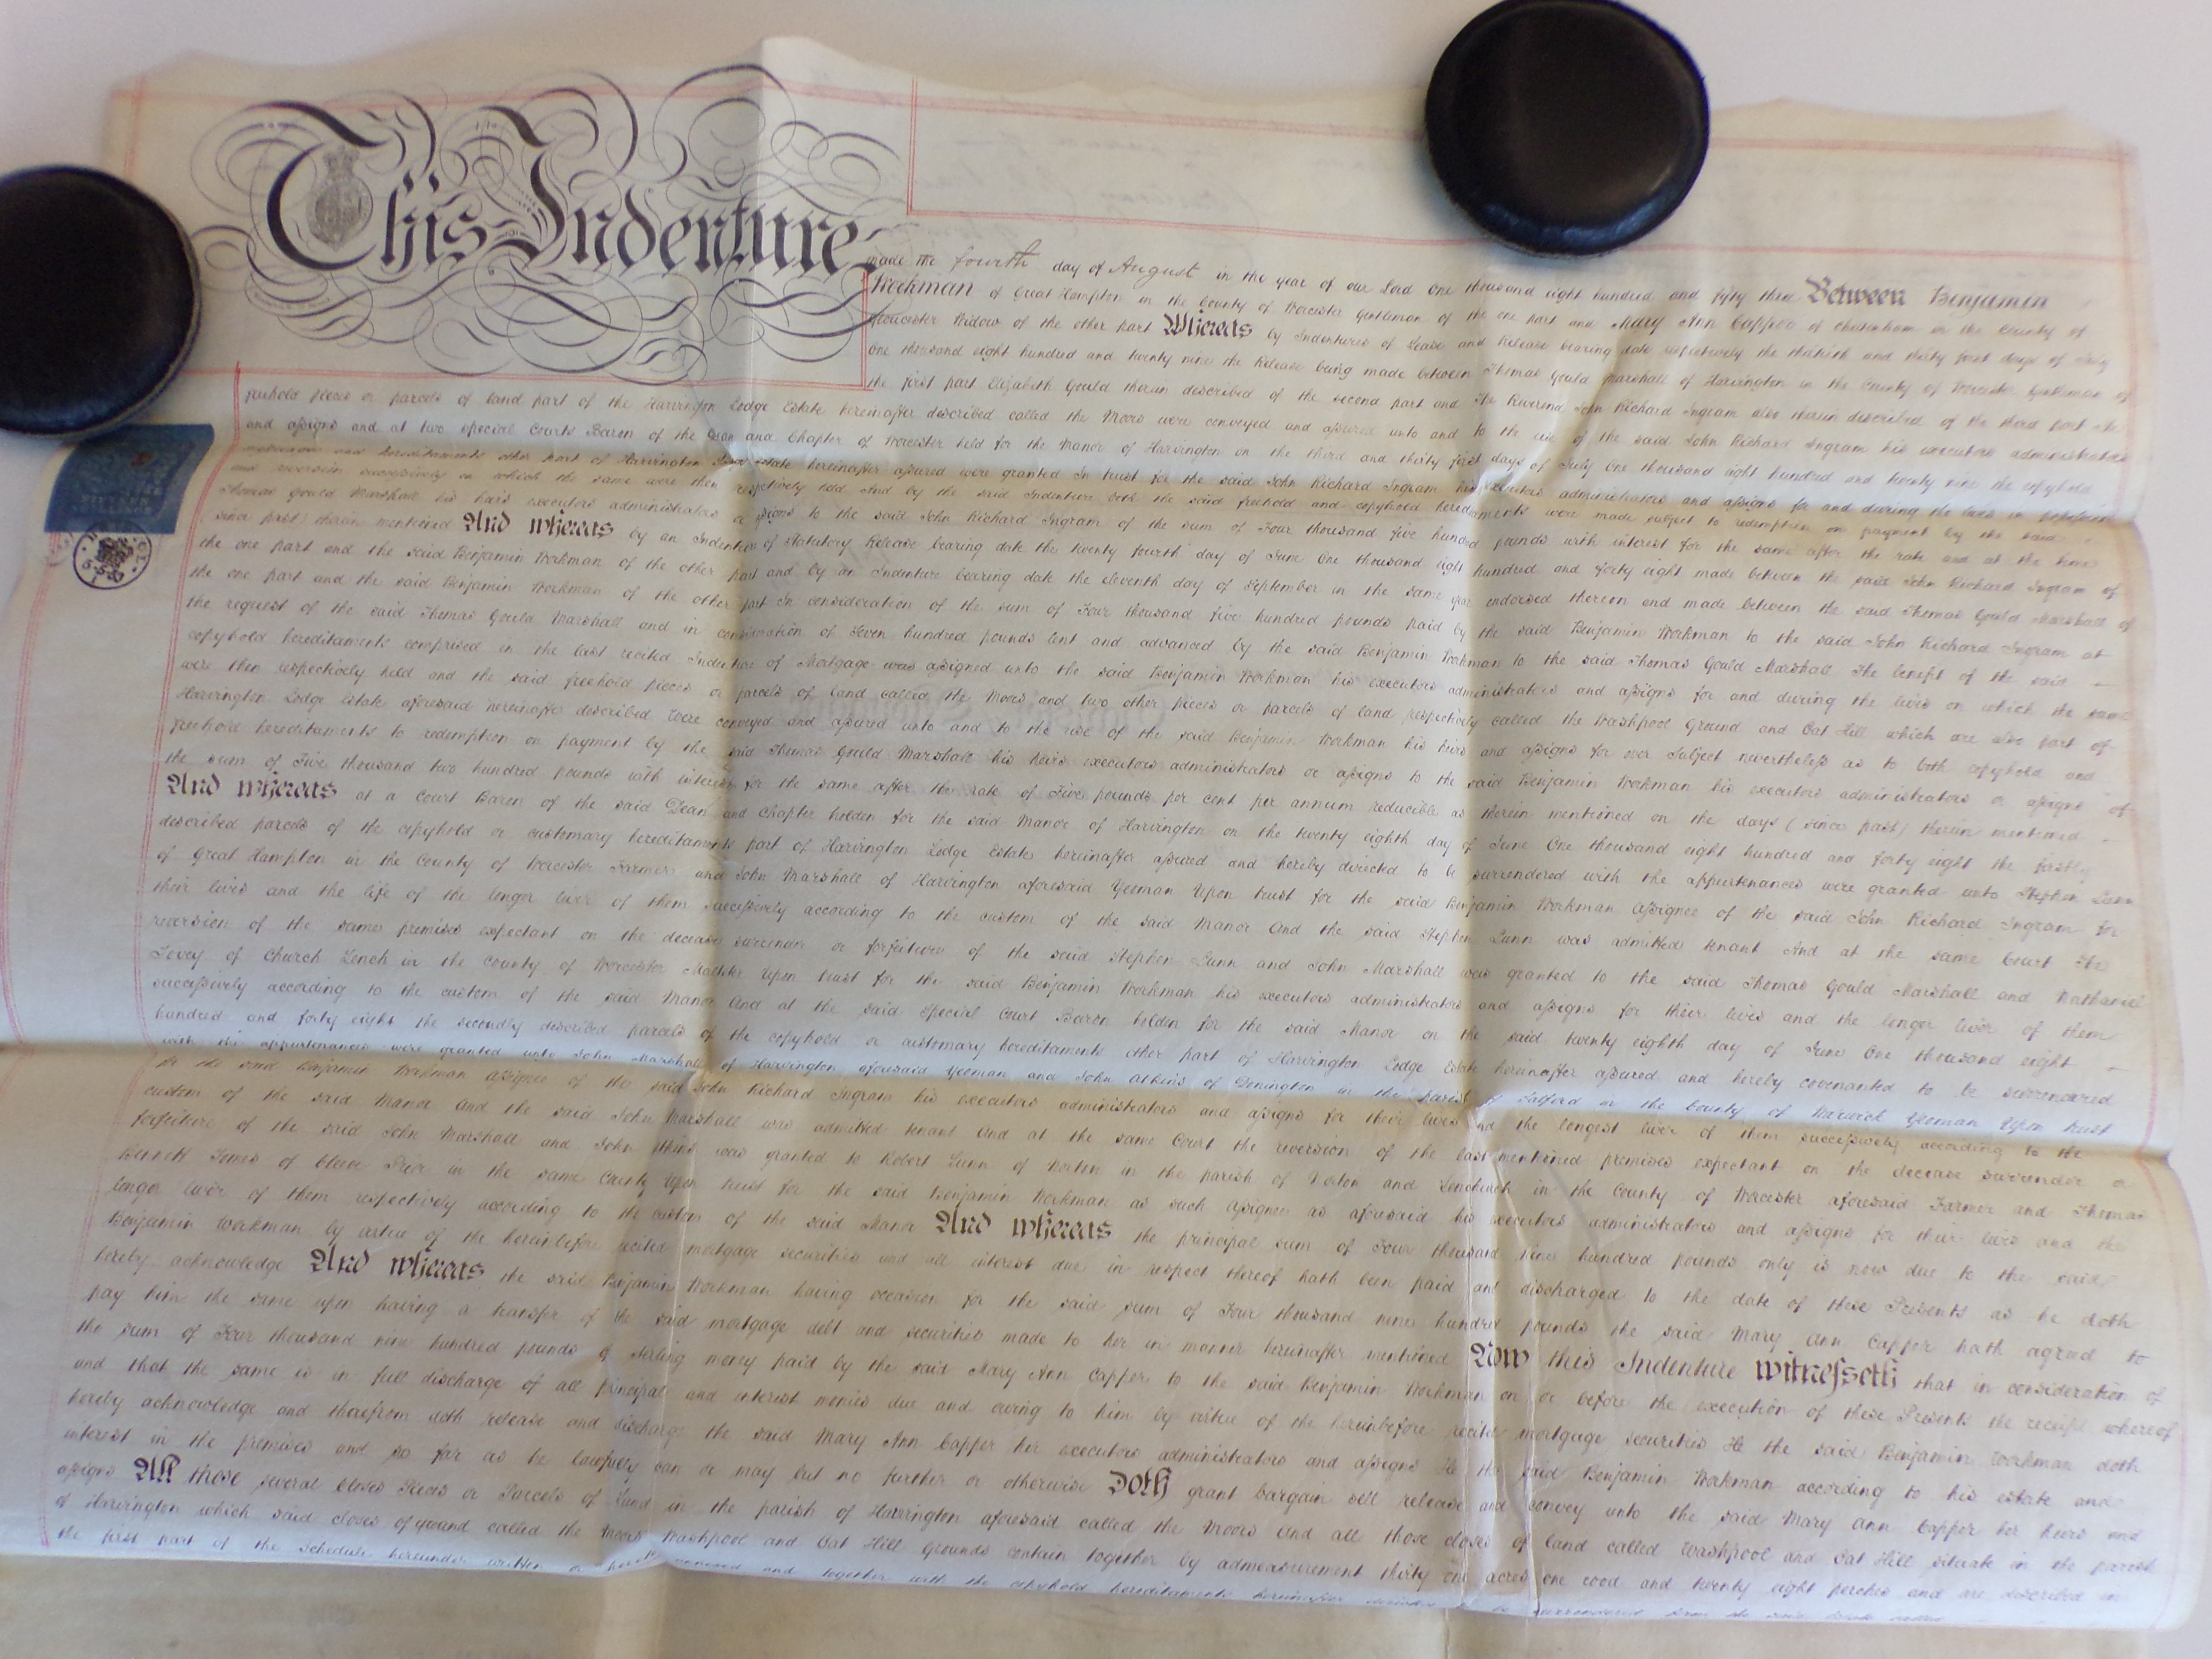 This Indenture made the fourth day of August in the year of our Lord one thousand eight hundred and fifty three Between Benjamin
Workman of Great Hampton in the County of Worcester Gentleman of the one part and Mary Ann Capper of Cheltenham in the County of
Gloucester Widow of the other part Whereas by Indentures of Lease and Release bearing date respectively the thirtieth and thirty first days of July
one thousand eight hundred and twenty nine the Release being made between Thomas Gould Marshall of Harvington in the County of Worcester Gentleman of
the first part Elizabeth Gould therein described of the second part and The Reverend John Richard Ingram also therein described of the third part the
freehold pieces or parcels of land part of the Harvington Lodge Estate hereinafter described called the Moors were conveyed and assured unto and to the use of the said John Richard Ingram his executors administrators
and assigns and at two special Courts Baron of the Dean and Chapter of Worcester held for the Manor of Harvington on the third and thirty first days of July One thousand eight hundred and twenty nine the copyhold
and hereditaments other part of Harvington Lodge Estate hereinafter assured were granted In trust for the said John Richard Ingram his executors administrators and assigns for and during the lives in possession
and reversion successively on which the same were then respectively held And by the said Indenture both the said freehold and copyhold hereditaments were made subject to redemption on payment by the said
Thomas Gould Marshall his heirs executors administrators or assigns to the said John Richard Ingram of the sum of Four thousand five hundred pounds with interest for the same after the rate and at the time
(since past) therein mentioned And whereas by an Indenture of Statutory Release bearing date the twenty fourth day of June One thousand eight hundred and forty eight made between the said John Richard Ingram of
the one part and the said Benjamin Workman of the other part and by an Indenture bearing date the eleventh day of September in the same year endorsed thereon and made between the said Thomas Gould Marshall of
the one part and the said Benjamin Workman of the other part In consideration of the sum of Four thousand five hundred pounds paid by the said Benjamin Workman to the said John Richard Ingram at
the request of the said Thomas Gould Marshall and in consideration of Seven hundred pounds lent and advanced by the said Benjamin Workman to the said Thomas Gould Marshall The benefit of the said
copyhold hereditaments comprised in the last recited Indenture of Mortgage was assigned unto the said Benjamin Workman his executors administrators and assigns for and during the lives on which the same
were then respectively held and the said freehold pieces or parcels of land called the Moors and two other pieces or parcels of land respectively called the Washpool Ground and Oat Hill which are also part of
Harvington Lodge Estate aforesaid hereinafter described Were conveyed and assured unto and to the use of the said Benjamin Workman his heirs and assigns for ever Subject nevertheless as to both copyhold and
freehold hereditaments to redemption on payment by the said Thomas Gould Marshall his heirs executors administrators or assigns to the said Benjamin Workman his executors administrators or assigns of
the sum of Five thousand two hundred pounds with interest for the same after the rate of Five pounds per cent per annum reducible as therein mentioned on the days (since past) therein mentioned
And whereas at a Court Baron of the said Dean and Chapter holden for the said Manor of Harvington on the twenty eighth day of June One thousand eight hundred and forty eight the firstly
described parcels of the copyhold or customary hereditaments part of Harvington Lodge Estate hereinafter assured and hereby directed to be surrendered with the appurtenances were granted unto Stephen Lunn
of Great Hampton in the County of Worcester Farmer and John Marshall of Harvington aforesaid Yeoman Upon trust for the said Benjamin Workman Assignee of the said John Richard Ingram for
their lives and the life of the longer liver of them successively according to the custom of the said Manor And the said Stephen Lunn was admitted tenant And at the same Court the
reversion of the same premises expectant on the decease surrender or forfeiture of the said Stephen Lunn and John Marshall was granted to the said Thomas Gould Marshall and Nathaniel
of Church Lench in the County of Worcester Maltster Upon trust for the said Benjamin Workman his executors administrators and assigns for their lives and the longer liver of them
successively according to the custom of the said Manor And at the said Special Court Baron holden for the said Manor on the said twenty eighth day of June One thousand eight
hundred and forty eight the secondly described parcels of the copyhold or customary hereditaments other part of Harvington Lodge Estate hereinafter assured and hereby covenanted to be surrendered
with the appurtenances were granted unto John Marshall of Harvington aforesaid Yeoman and John Atkins of Dunington in the parish of Salford in the County of Warwick Yeoman Upon trust
for the said Benjamin Workman Assignee of the said John Richard Ingram his executors administrators and assigns for their lives and the longest liver of them successively according to the
custom of the said Manor And the said John Marshall was admitted tenant And at the same Court the reversion of the last mentioned premises expectant on the decease surrender or
forfeiture of the said John Marshall and John Atkins was granted to Robert Lunn of Norton in the parish of Norton and Lenchwick in the County of Worcester aforesaid Farmer and Thomas
Bennett Jones of Cleeve Prior in the same County Upon trust for the said Benjamin Workman as such Assignee as aforesaid his executors administrators and assigns for their lives and the
longer liver of them respectively according to the custom of the said Manor And whereas the principal sum of Four thousand nine hundred pounds only is now due to the said
Benjamin Workman by virtue of the hereinbefore recited mortgage securities and all interest due in respect thereof hath been paid and discharged to the date of these Presents as he doth
hereby acknowledge And whereas the said Benjamin Workman having occasion for the said sum of Four thousand nine hundred pounds the said Mary Ann Capper hath agreed to
pay him the same upon having a transfer of the said mortgage debt and securities made to her in manner hereinafter mentioned Now this Indenture witnesseth that in consideration of
the sum of Four thousand nine hundred pounds of Sterling money paid by the said Mary Ann Capper to the said Benjamin Workman on or before the execution of these Presents the receipt whereof
and that the same is in full discharge of all principal and interest monies due and owing to him by virtue of the hereinbefore recited mortgage securities He the said Benjamin Workman doth
hereby acknowledge and therefrom doth release and discharge the said Mary Ann Capper her executors administrators and assigns He the said Benjamin Workman according to his estate and
interest in the premises and so far as he lawfully can or may but no further or otherwise Doth grant bargain sell release and convey unto the said Mary Ann Capper her heirs and
assigns All those several closes Pieces or Parcels of Land in the parish of Harvington aforesaid called the Moors And all those closes of land called Washpool and Oat Hill situate in the parish
of Harvington which said closes of ground called the Moors Washpool and Oat Hill Grounds contain together by admeasurement thirty one acres one rood and twenty eight perches and are described in
the first part of the Schedule hereunder written or hereto annexed and together with the copyhold hereditaments hereinafter